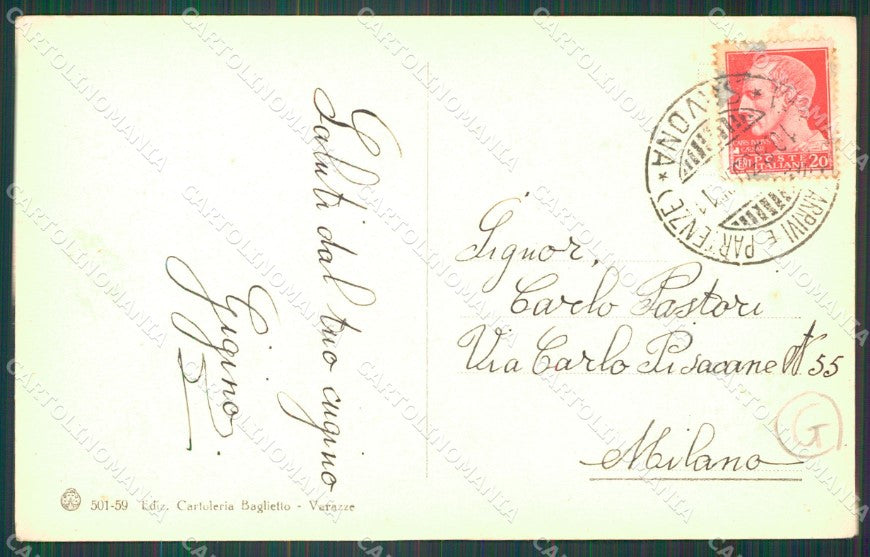 Saluti dal tuo cugino
Gigino
Signor,
Carlo Pastori
Via Carlo Pisacane N. 55
Milano
G
501-59 Ediz. Cartoleria Baglietto - Varazze
SAVONA
ARRIVI E PARTENZE
POSTE
ITALIANE
20
CARTOLINOMANIA